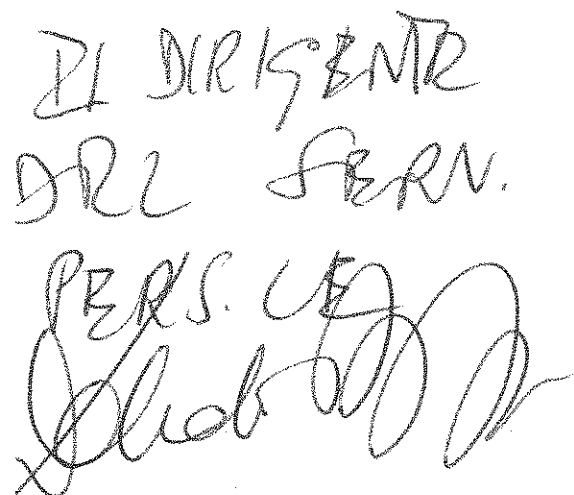 IL DIRIGENTE
DEL SERV.
PERS. CE